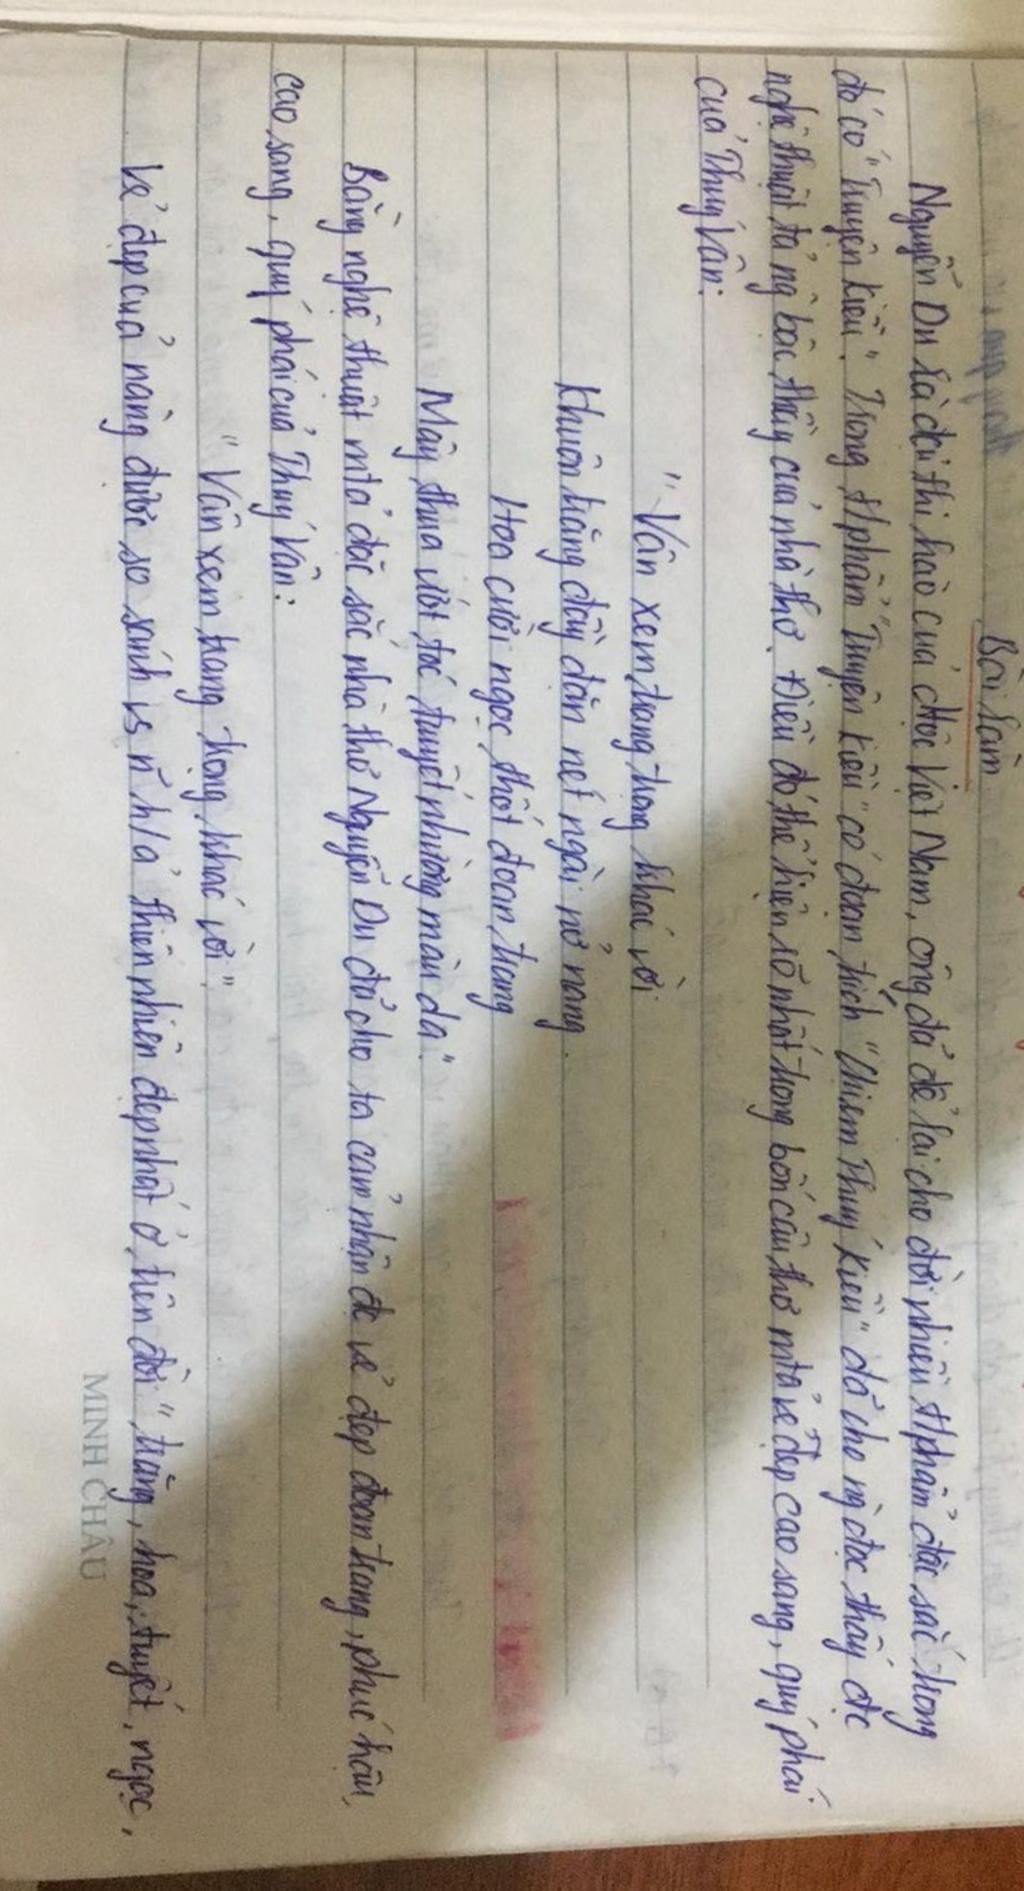 Bài làm
Nguyễn Du là đại thi hào của dtộc Việt Nam, ông đã để lại cho đời nhiều t/phẩm đặc sắc, trong
đó có "Truyện Kiều". Trong t/phẩm "Truyện Kiều" có đoạn trích "Chị em Thuý Kiều" đã cho ng đọc thấy đc
nghệ thuật tả ng bậc thầy của nhà thơ. Điều đó thể hiện rõ nhất trong bốn câu thơ m/tả vẻ đẹp cao sang, quý phái
của Thuý Vân:
"Vân xem trang trọng khác vời
Khuôn trăng đầy đặn nét ngài nở nang.
Hoa cười ngọc thốt đoan trang
Mây thua nước tóc, tuyết nhường màu da."
Bằng nghệ thuật m/tả đặc sắc nhà thơ Nguyễn Du đã cho ta cảm nhận đc vẻ đẹp đoan trang, phúc hậu,
cao sang, quý phái của Thuý Vân:
"Vân xem trang trọng khác vời"
Vẻ đẹp của nàng được so sánh vs n~ h/ả thiên nhiên đẹp nhất ở trên đời", trăng, hoa, tuyết, ngọc,
MINH CHÂU